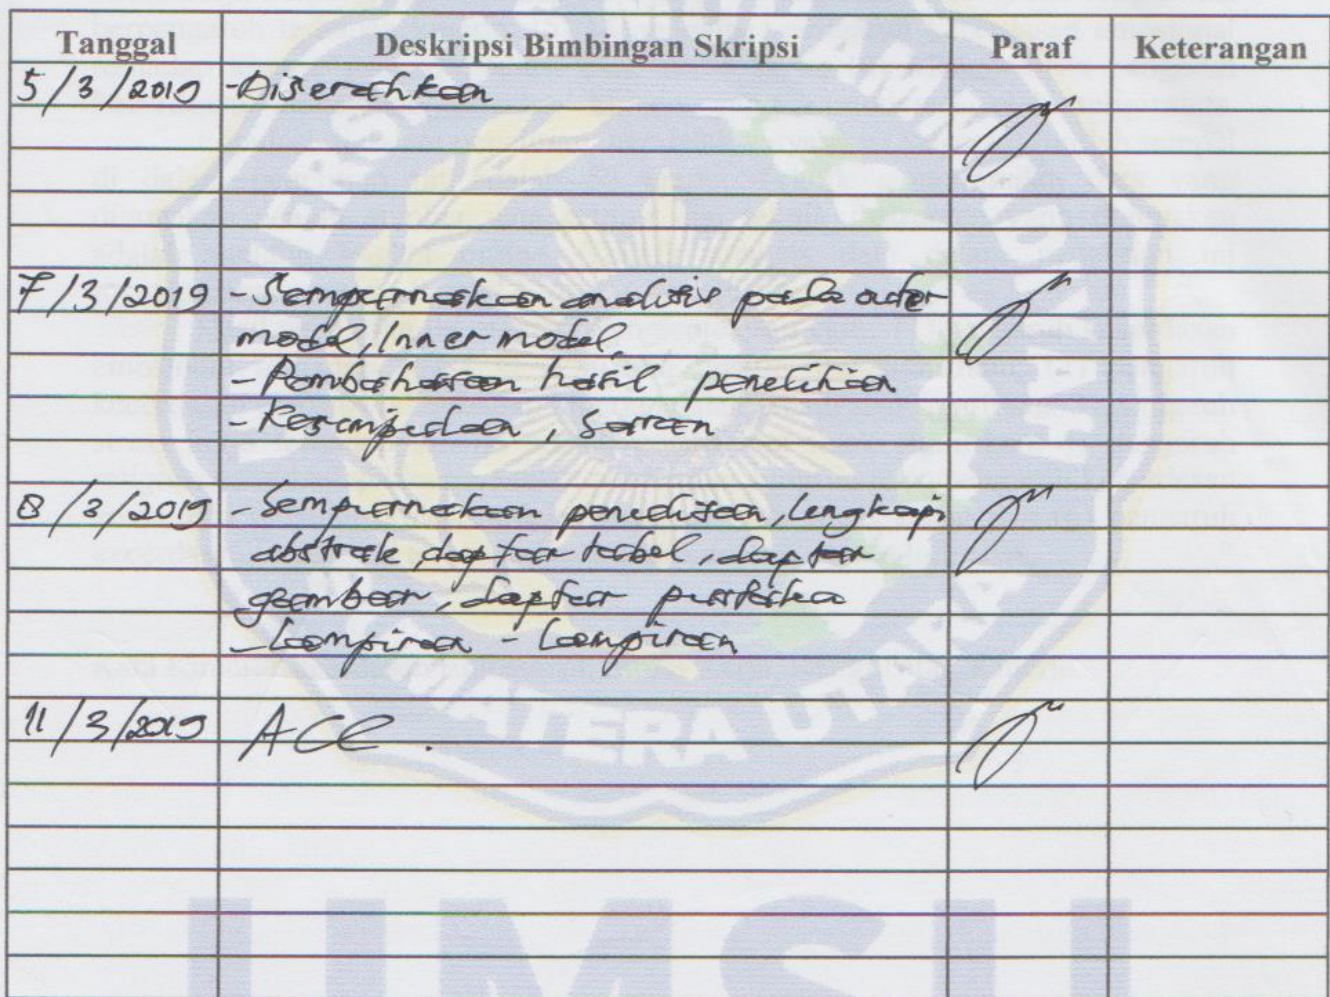 Tanggal Deskripsi Bimbingan Skripsi Paraf Keterangan
5/3/2019 - Diserahkan
7/3/2019 - Sempurnakan analisis pada outer
model, Inner model,
- Pembahasan hasil penelitian
- Kesimpulan, Saran
8/3/2019 - Sempurnakan penulisan, lengkapi
abstrak, daftar tabel, daftar
gambar, daftar pustaka
- Lampiran - Lampiran
11/3/2019 ACC.
UNIVERSITAS MUHAMMADIYAH
SUMATERA UTARA
UMSU